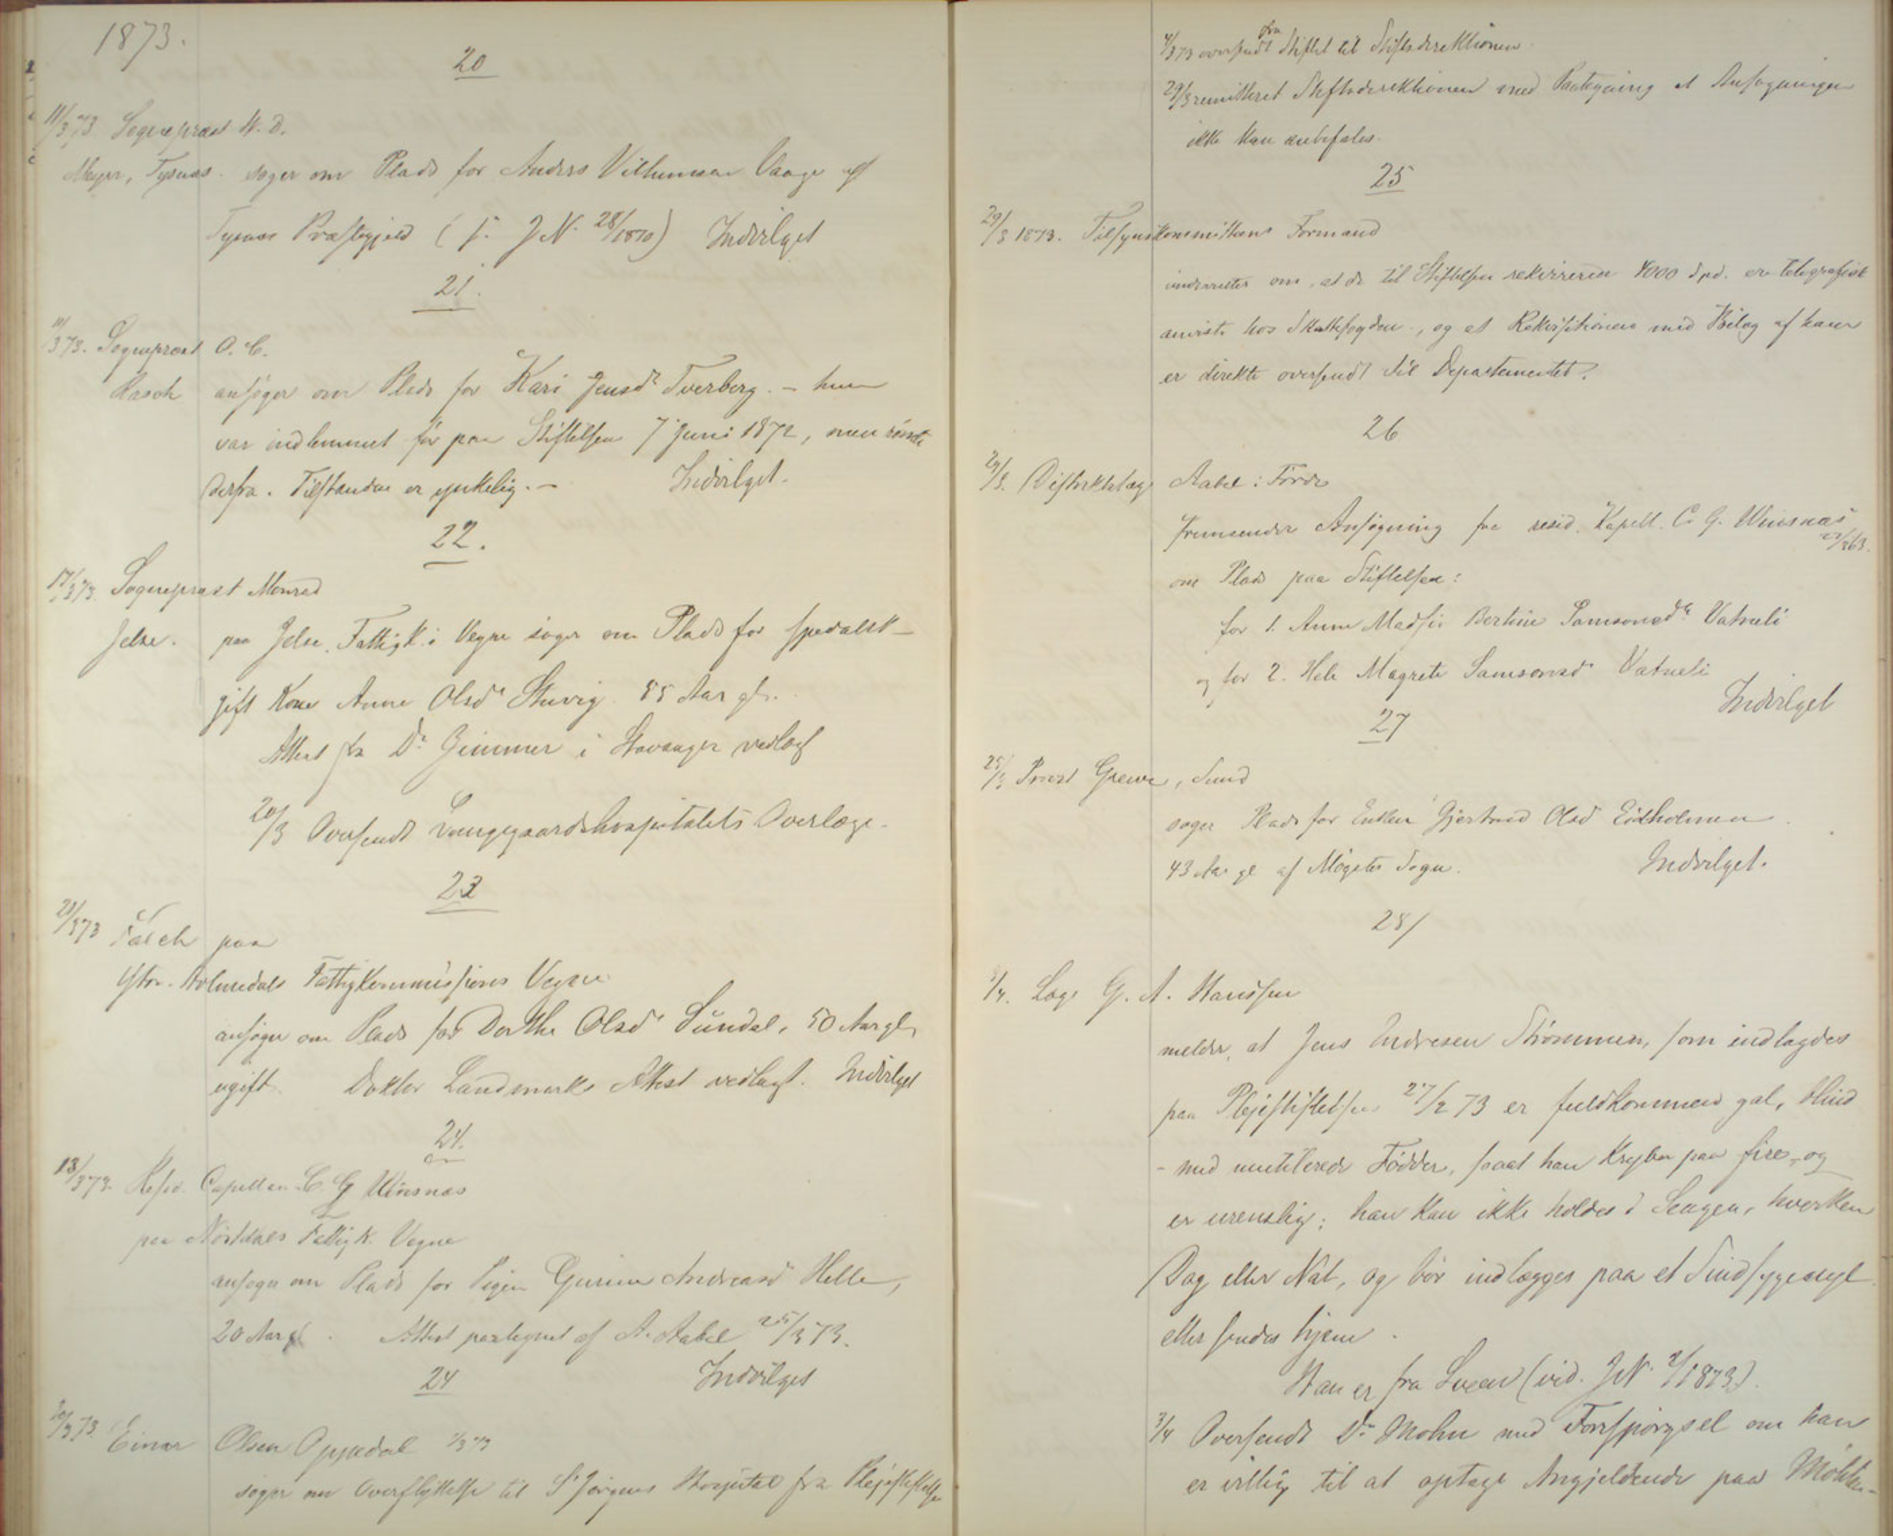 1873.
20
11/3 73. Sognepræst H. D.
Meyer, Tysnæs. søger om Plads for Anders Villumsen Vaage af
Tysnæs Præstegjeld (s. J.N. 28/1870) Indvilget
21.
11/3 73. Sognepræst O. C.
Rasch ansøger om Plads for Kari Jensdr Tverberg. – hun
var indlemmet før paa Stiftelsen 7 Juni 1872, men rømte
derfra. Tilstanden er ynkelig. – Indvilget.
22.
17/3 73. Sognepræst Monrad
Jelse. paa Jelse Fattigk.s Vegne søger om Plads for spedalsk
gift Kone Anne Olsdr Stuvig 55 Aar gl.
Attest fra Dr Gimmer i Stavanger vedlagt
20/3 Oversendt Lungegaardshospitalets Overlæge.
23
21/3 73 Falch paa
Ytre Holmedals Fattigkommissions Vegne
ansøger om Plads for Dorthe Olsdr Sundal, 50 Aar gl,
ugift. Doktor Landmarks Attest vedlagt. Indvilget
24.
13/3 73. Resid. Capellan C. G Winsnæs
paa Førdes Fattigk. Vegne
ansøger om Plads for Pigen Gurine Andreasdr Helle,
20 Aar gl. Attest paategnet af A. Aabel 25/3 73.
24 Indvilget
Einar Olsen Oppedal
søger om Overflyttelse til St Jørgens Hospital fra Plejestiftelsen
oversendt fra Stiftet til Stiftsdirektionen
29/3 remitteret Stiftsdirektionen med Paategning at Ansøgningen
ikke kan anbefales.
25
29/3 1873. Tilsynskommitteens Formand
underrettes om, at de til Stiftelsen rekvirerede 4000 Spd. er telegrafisk
anviste hos Skattefogden, og at Rekvisitionen med Bilag af ham
er direkte oversendt til Departementet.
26
29/3. Distriktslæge Aabel i Førde
fremsender Ansøgning fra resid. Kapell. C. G. Winsnæs
om Plads paa Stiftelsen:
for 1. Anne Madsia Bertine Samsonsdr Vatneli
og for 2. Hele Magrete Samsonsdr Vatneli
Indvilget
27
25/3 Provst Greve, Sund
søger Plads for Enken Gjertrud Olsd Eidholmen
43 Aar gl af Møgster Sogn. Indvilget.
28/
Læge G. A. Hansen
melder, at Jens Endresen Strømmen, som indlagdes
paa Plejestiftelsen 27/2 73 er fuldkommen gal, blind
– med mutilerede Fødder, saaat han kryber paa fire, og
er urenslig; han kan ikke holdes i Sengen, hverken
Dag eller Nat, og bør indlægges paa et Sindsygeasyl
eller sendes hjem.
Han er fra Sveen (vid. JN. 2/1873).
3/4 Oversendt Dr Mohn med Forespørgsel om han
er villig til at optage Angjeldende paa Møllen-